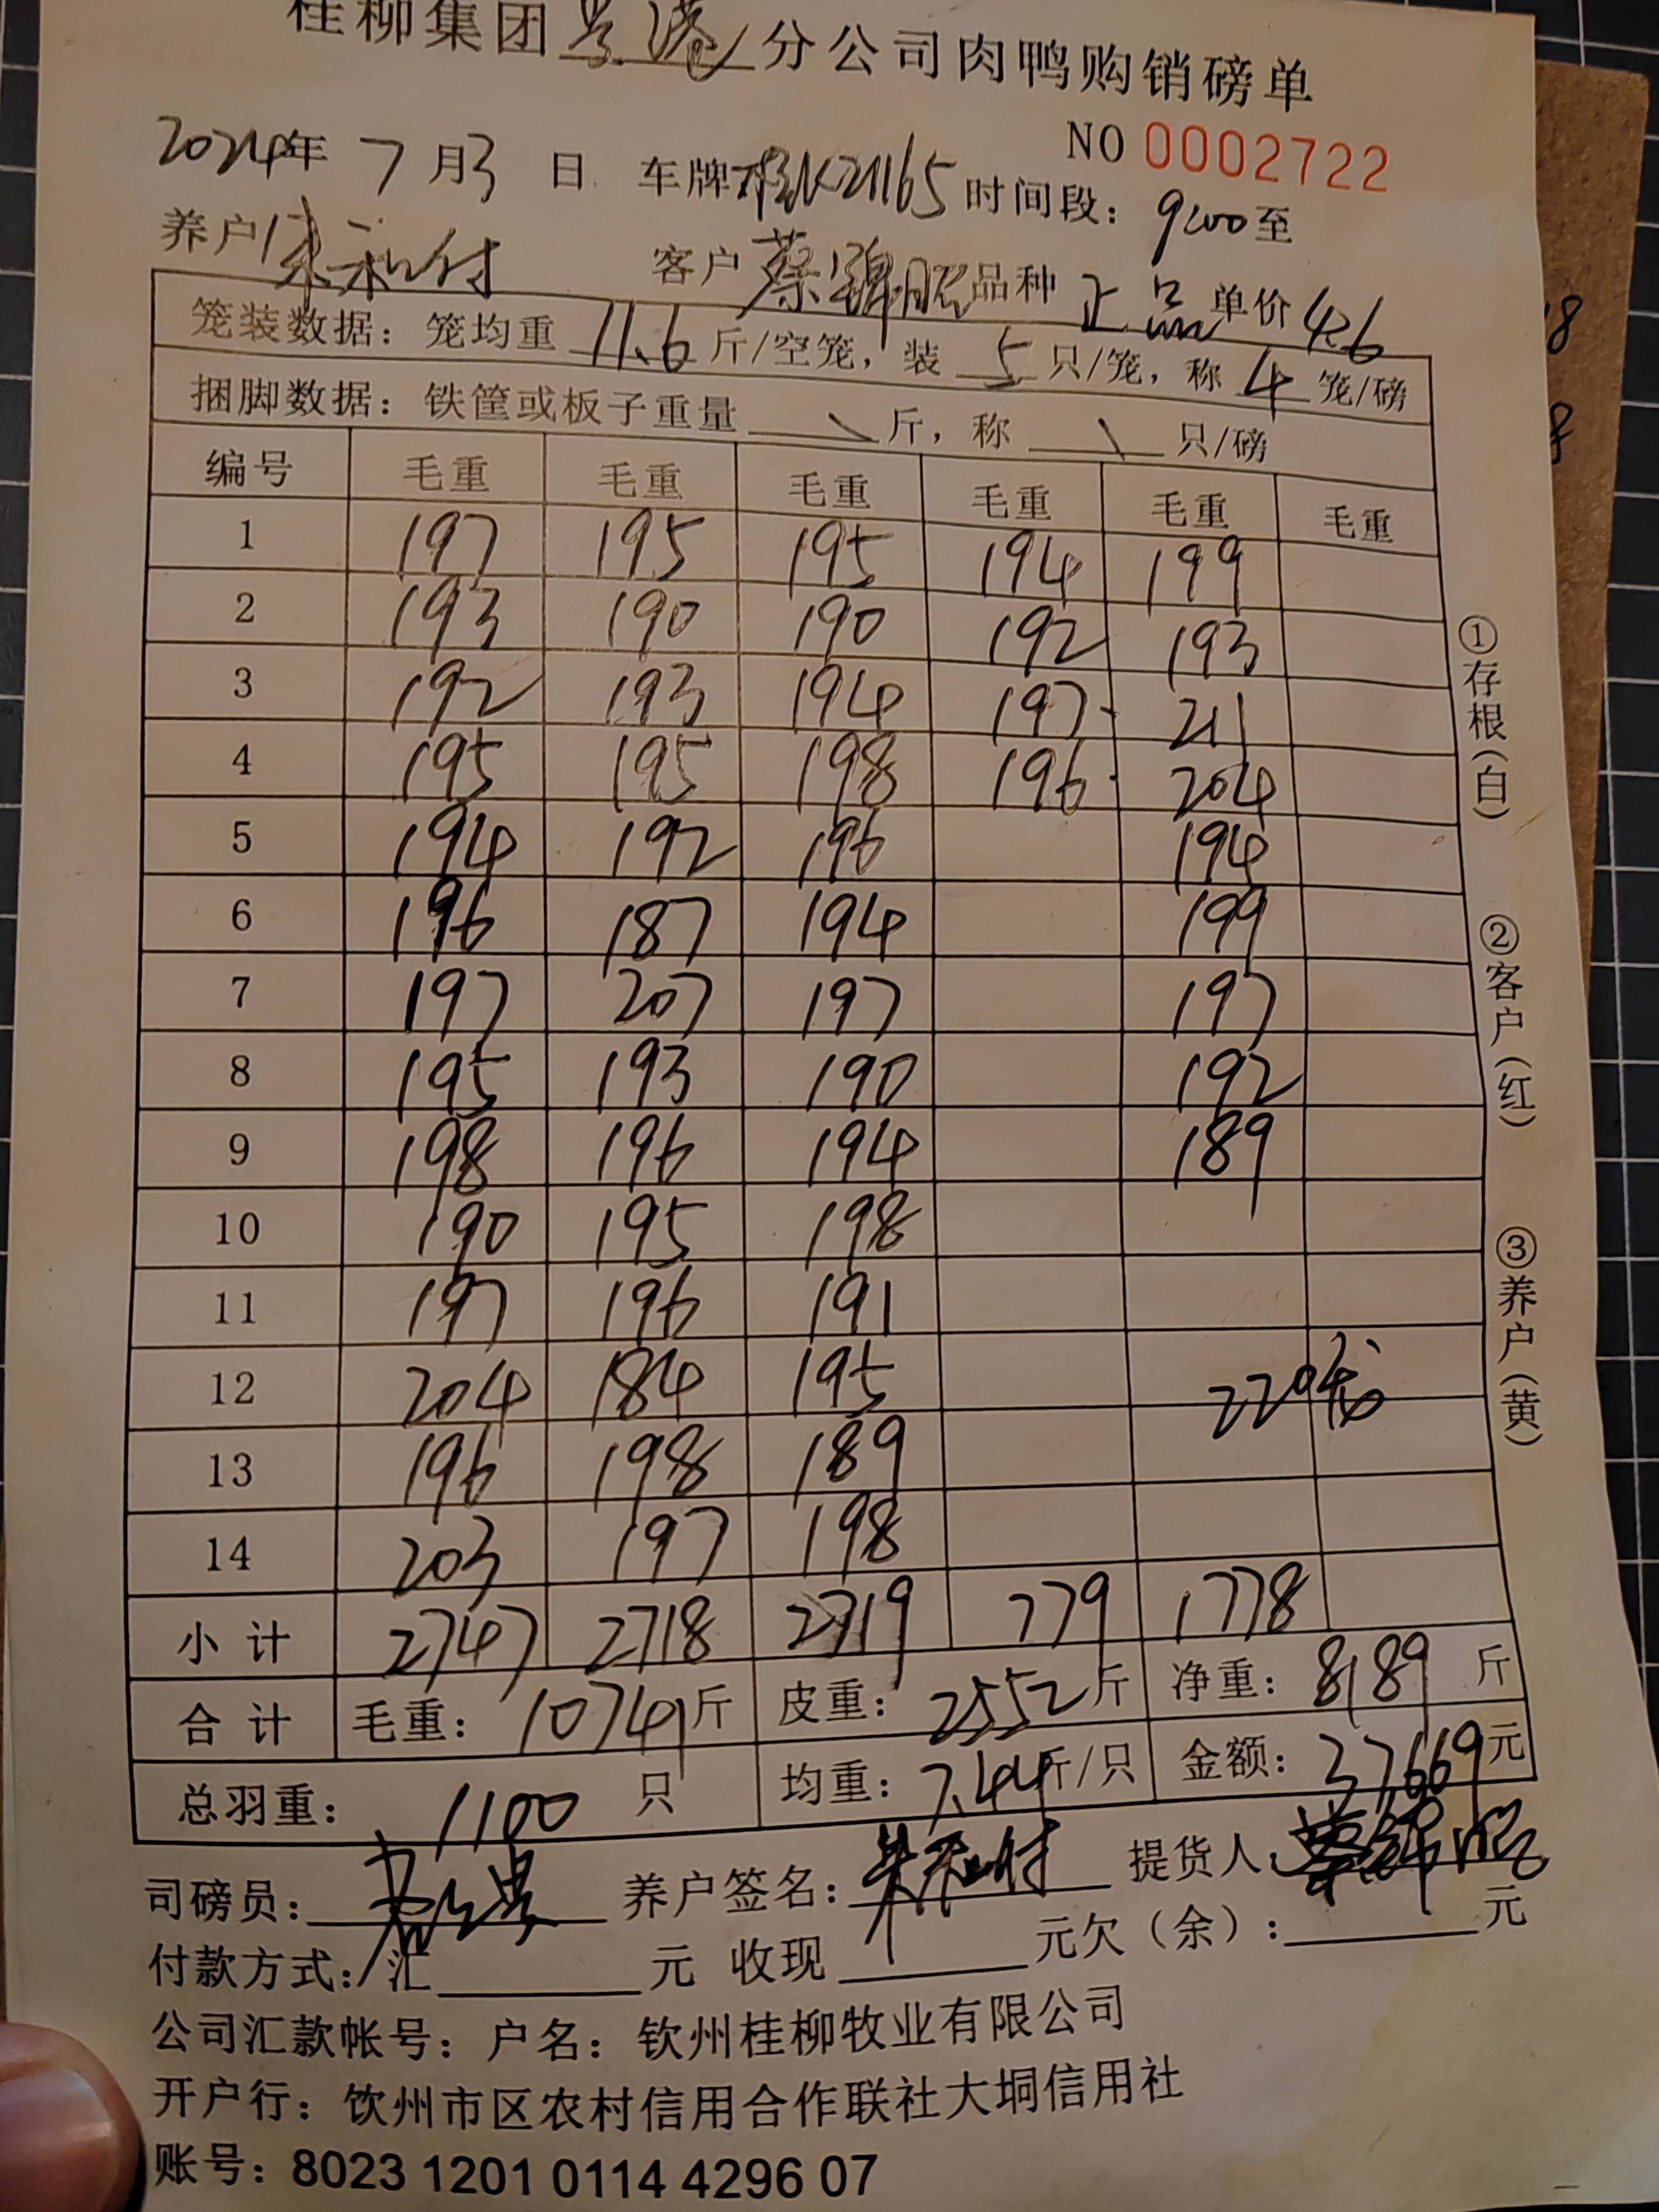 桂柳集团 贵港 分公司肉鸭购销磅单
NO 0002722
2024年 7 月 3 日 车牌 桂K21165 时间段: 9:00 至
养户 朱和付 客户 蔡锦昭 品种 正品 单价 4.6
笼装数据: 笼均重 11.6 斤/空笼, 装 5 只/笼, 称 4 笼/磅
捆脚数据: 铁筐或板子重量 \ 斤, 称 \ 只/磅
编号 毛重 毛重 毛重 毛重 毛重 毛重
1 197 195 195 194 199
2 193 190 190 192 193
3 192 193 194 197 211
4 195 195 198 196 204
5 194 192 196 194
6 196 187 194 199
7 197 207 197 197
8 195 193 190 192
9 198 196 194 189
10 190 195 198
11 197 196 191
12 204 184 195 220
13 196 198 189
14 203 197 198
小计 2747 2718 2719 779 1778
合计 毛重: 10741 斤 皮重: 2552 斤 净重: 8189 斤
总羽重: 1100 只 均重: 7.44 斤/只 金额: 37669 元
司磅员: 养户签名: 朱和付 提货人: 蔡锦昭
付款方式: 汇 元 收现 元欠(余): 元
公司汇款帐号: 户名: 钦州桂柳牧业有限公司
开户行: 钦州市区农村信用合作联社大垌信用社
账号: 8023 1201 0114 4296 07
①存根(白)
②客户(红)
③养户(黄)